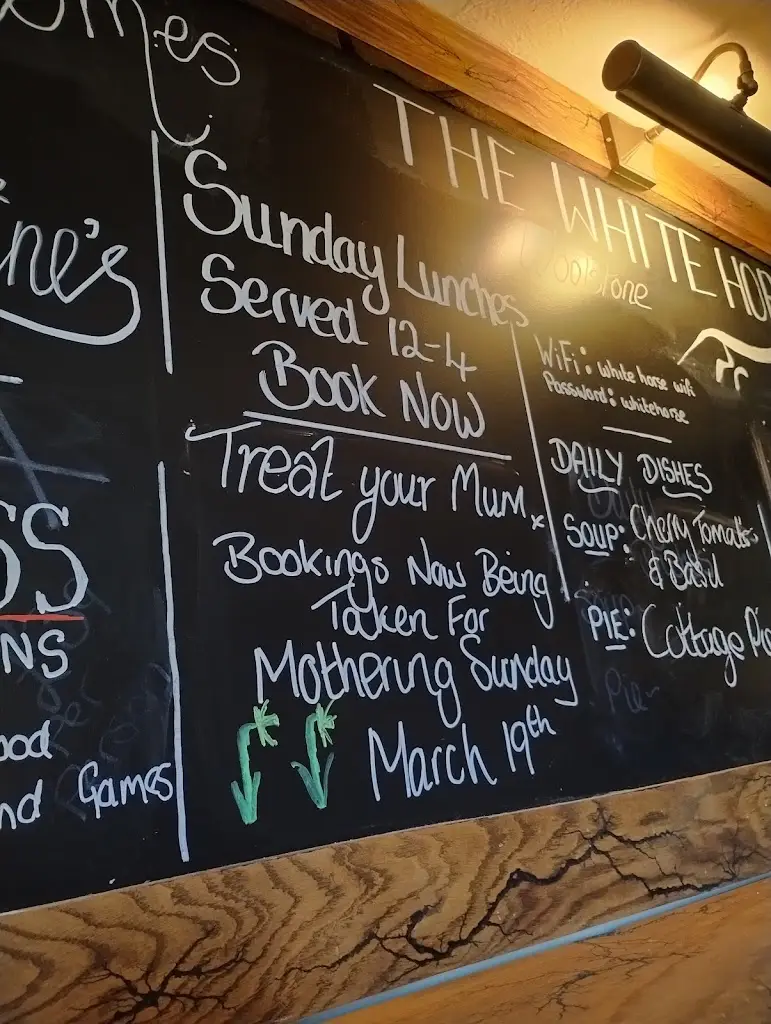 omes
ne's
SS
NS
ood
nd Games
Sunday Lunches
Served 12-4
Book Now
Treat your Mum x
Bookings Now Being
Taken For
Mothering Sunday
March 19th
THE WHITE HOR
Woolstone
WiFi: white horse wifi
Password: whitehorse
DAILY DISHES
SOUP: Cherry Tomato
& Basil
PIE: Cottage Pie